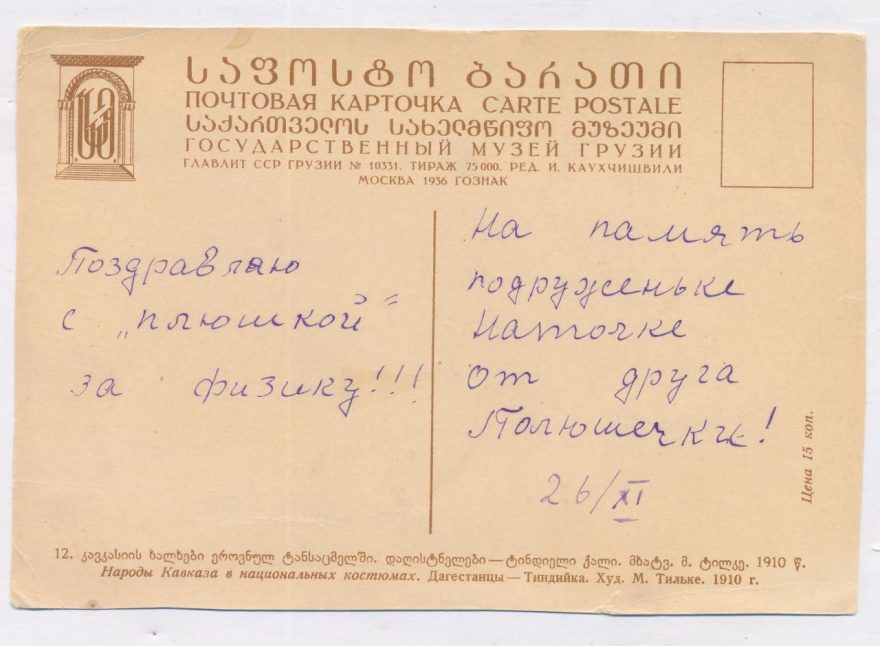 ᲡᲐᲤᲝᲡᲢᲝ ᲑᲐᲠᲐᲗᲘ
ПОЧТОВАЯ КАРТОЧКА CARTE POSTALE
ᲡᲐᲥᲐᲠᲗᲕᲔᲚᲝᲡ ᲡᲐᲮᲔᲚᲛᲬᲘᲤᲝ ᲛᲣᲖᲔᲣᲛᲘ
ГОСУДАРСТВЕННЫЙ МУЗЕЙ ГРУЗИИ
ГЛАВЛИТ ССР ГРУЗИИ № 10331. ТИРАЖ 75000. РЕД. И. КАУХЧИШВИЛИ
МОСКВА 1936 ГОЗНАК
Поздравляю
с „плюшкой"
за физику!!!
На память
подруженьке
Наточке
От друга
Полюшечки!
26/XI
Цена 15 коп.
12. კავკასიის ხალხები ეროვნულ ტანსაცმელში. დაღისტნელები — ტინდიელი ქალი. მხატვ. მ. ტილკე. 1910 წ.
Народы Кавказа в национальных костюмах. Дагестанцы — Тиндийка. Худ. М. Тильке. 1910 г.